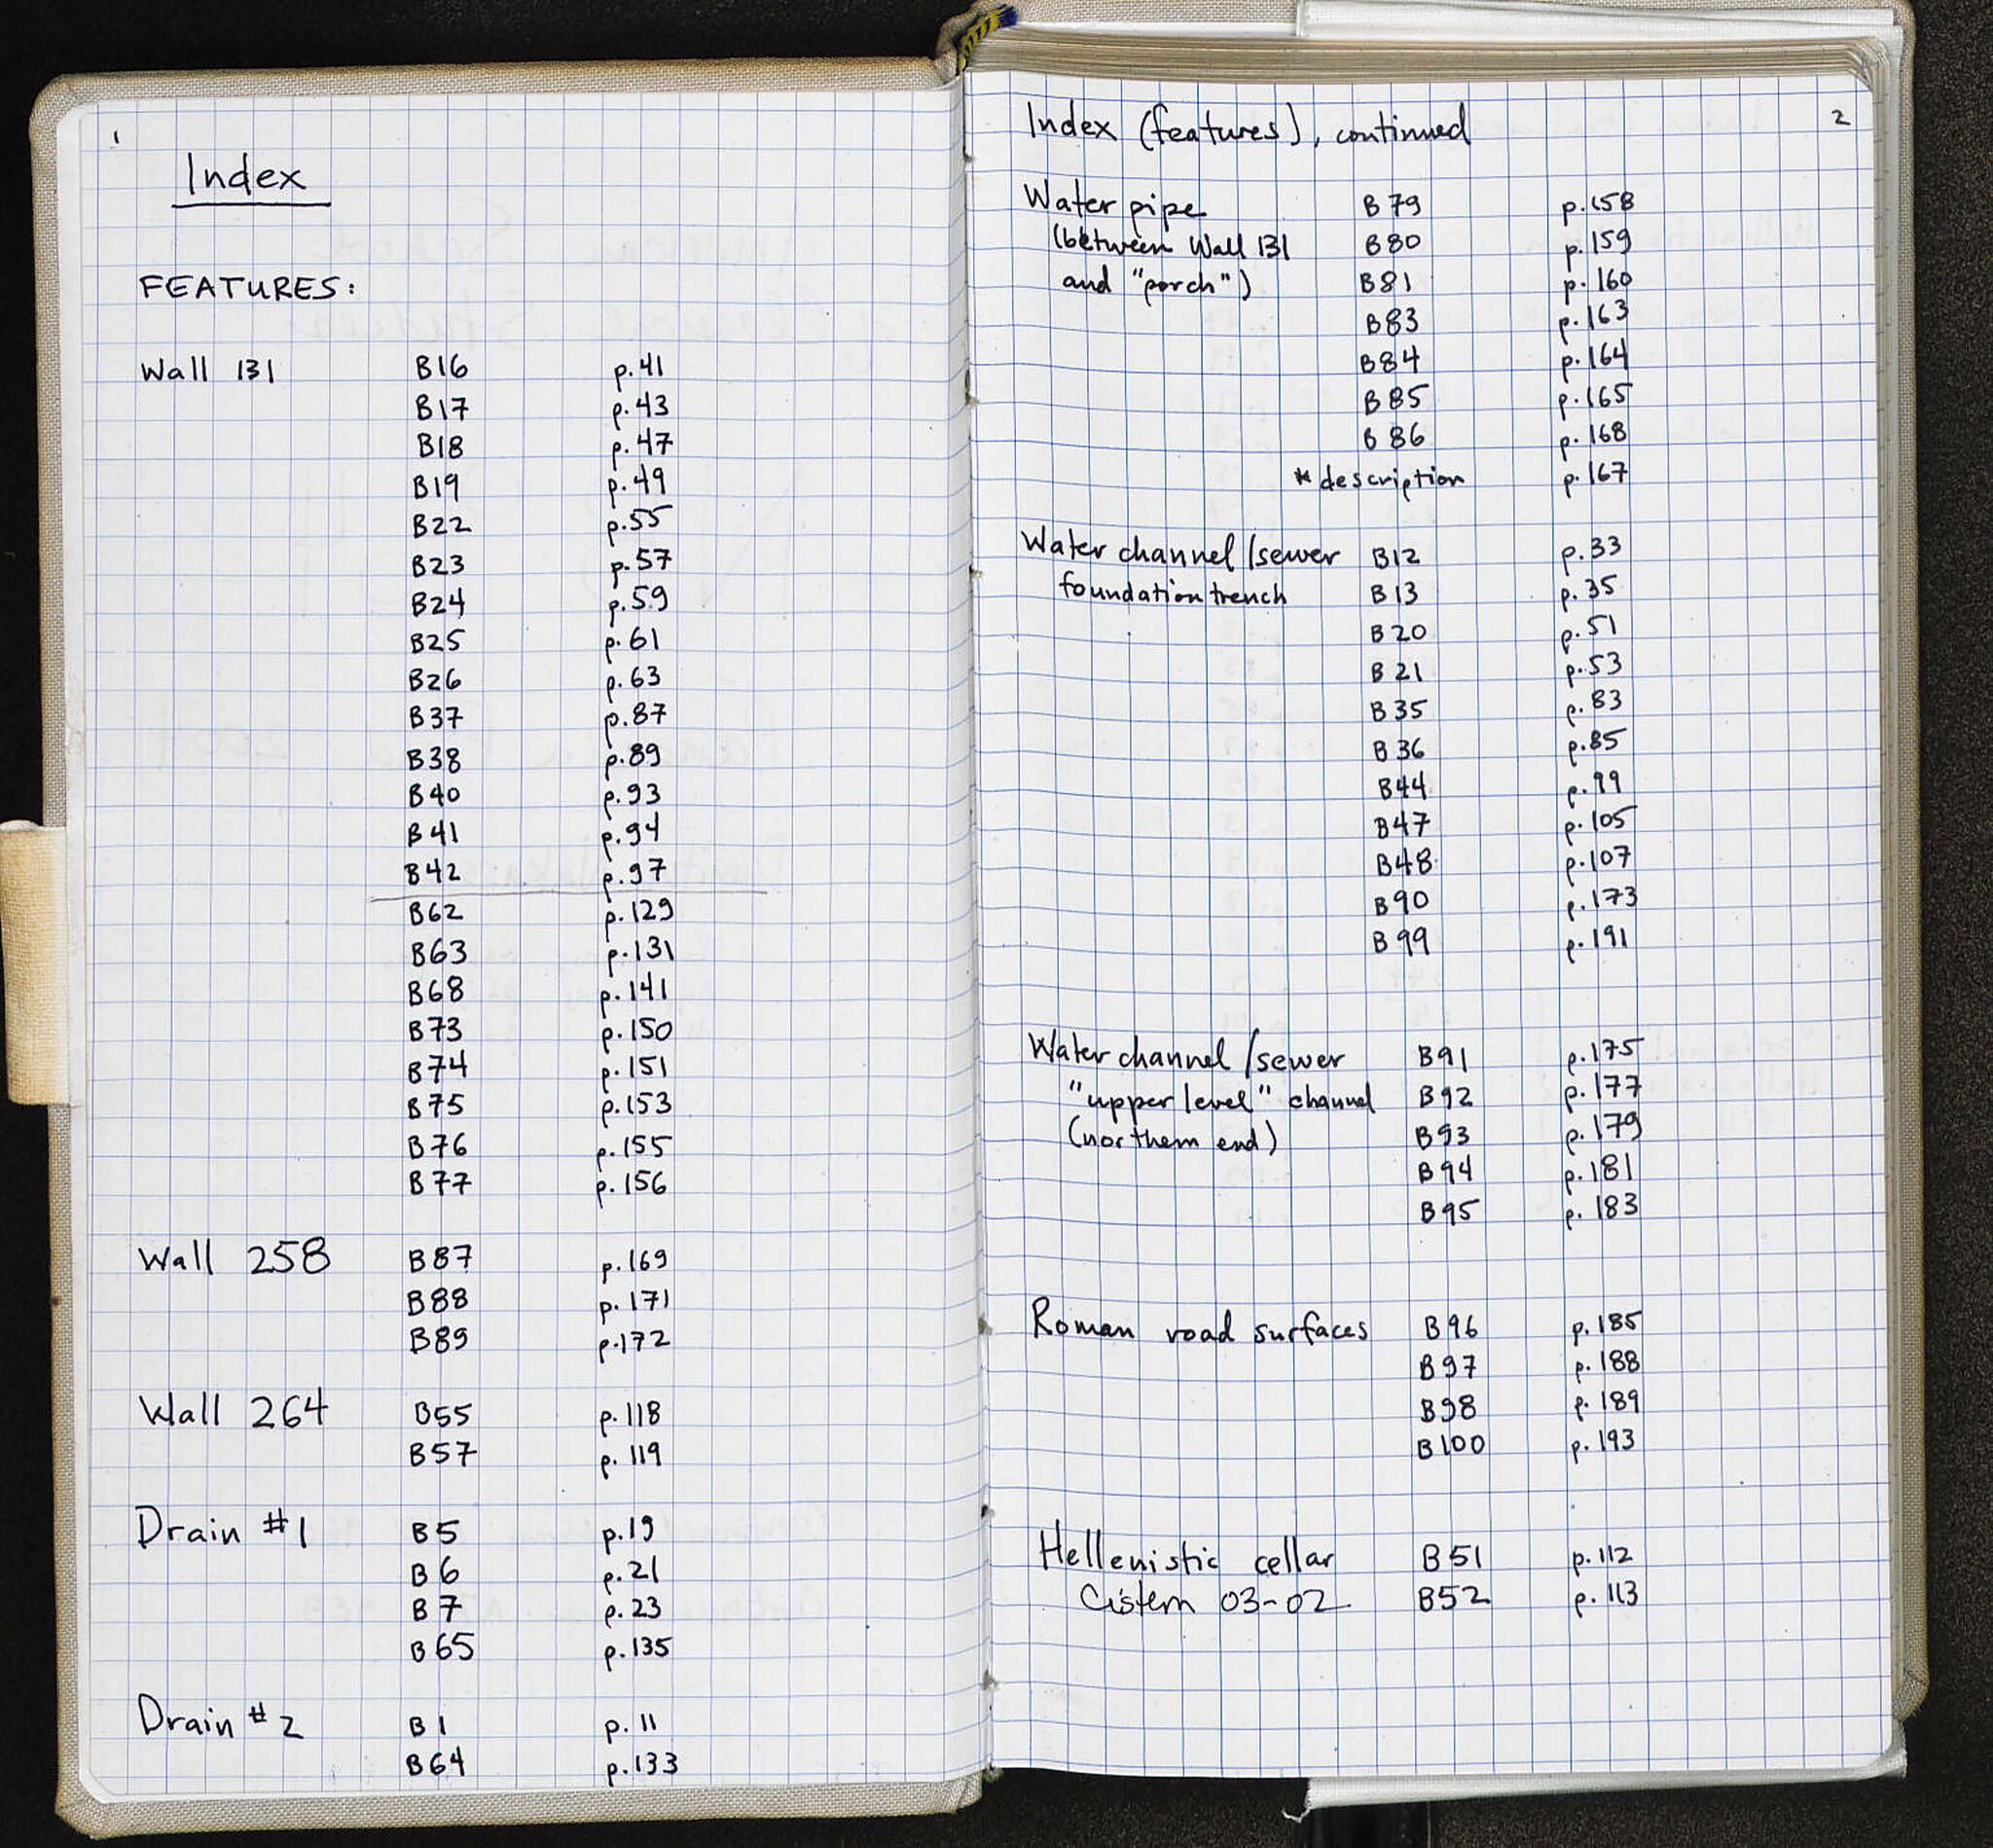 1
Index
FEATURES:
Wall 131 B16 p.41
B17 p.43
B18 p.47
B19 p.49
B22 p.55
B23 p.57
B24 p.59
B25 p.61
B26 p.63
B37 p.87
B38 p.89
B40 p.93
B41 p.94
B42 p.97
B62 p.129
B63 p.131
B68 p.141
B73 p.150
B74 p.151
B75 p.153
B76 p.155
B77 p.156
Wall 258 B87 p.169
B88 p.171
B89 p.172
Wall 264 B55 p.118
B57 p.119
Drain #1 B5 p.19
B6 p.21
B7 p.23
B65 p.135
Drain #2 B1 p.11
B64 p.133
2
Index (features), continued
Water pipe B79 p.158
(between Wall 131 B80 p.159
and "porch") B81 p.160
B83 p.163
B84 p.164
B85 p.165
B86 p.168
*description p.167
Water channel/sewer B12 p.33
foundation trench B13 p.35
B20 p.51
B21 p.53
B35 p.83
B36 p.85
B44 p.99
B47 p.105
B48 p.107
B90 p.173
B99 p.191
Water channel/sewer B91 p.175
"upper level" channel B92 p.177
(northern end) B93 p.179
B94 p.181
B95 p.183
Roman road surfaces B96 p.185
B97 p.188
B98 p.189
B100 p.193
Hellenistic cellar B51 p.112
Cistern 03-02 B52 p.113